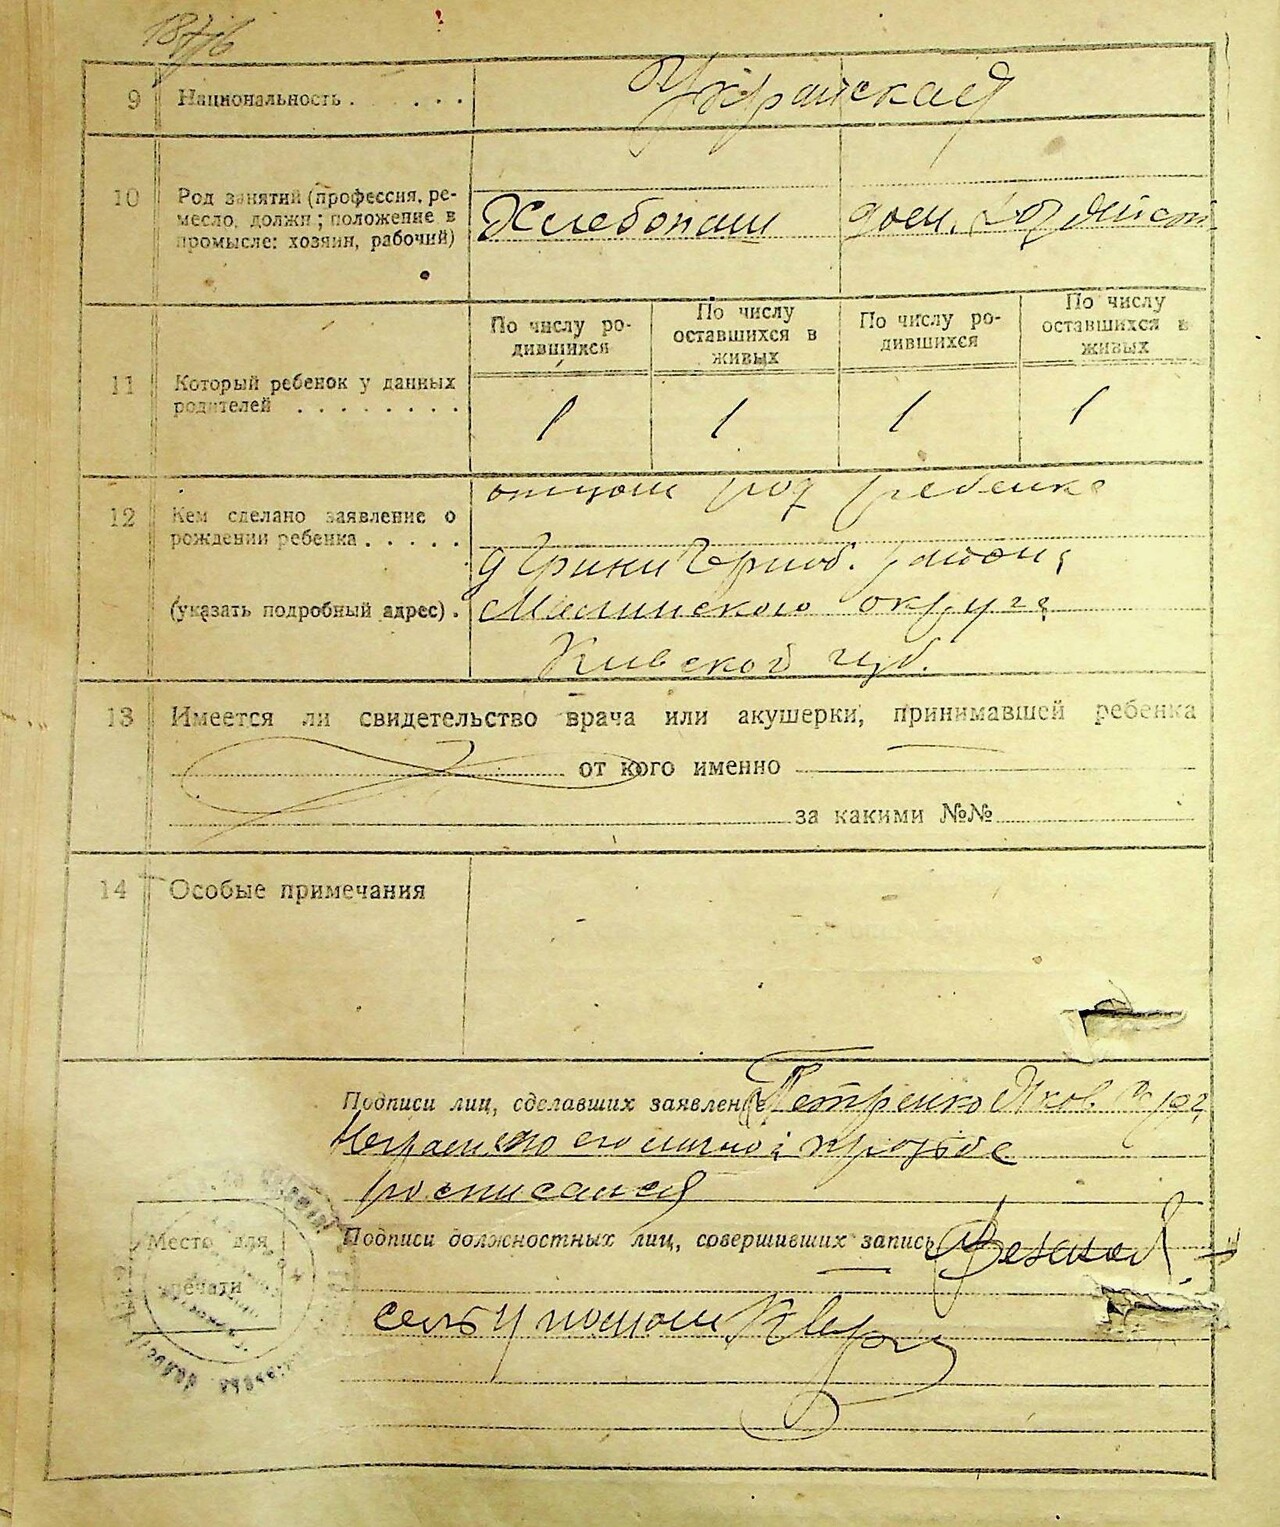 9 Национальность . . . . . .
Украинская
10 Род занятий (профессия, ре-
месло, должн; положение в
промысле: хозяин, рабочий)
Хлебопаш дом. хозяйст
11 Который ребенок у данных
родителей . . . . . . . .
По числу ро-
дившихся
По числу
оставшихся в
живых
По числу ро-
дившихся
По числу
оставшихся в
живых
1 1 1 1
12 Кем сделано заявление о
рождении ребенка . . . . .
(указать подробный адрес) .
отцом ребенка
д Грини Черноб. район
Малинского округа
Киевской губ.
13 Имеется ли свидетельство врача или акушерки, принимавшей ребенка
от кого именно
за какими №№
14 Особые примечания
Подписи лиц, сделавших заявлен
Петренко Яков
Неграм, по его личной просьбе
росписался
Подписи должностных лиц, совершивших запись
Место для
печати